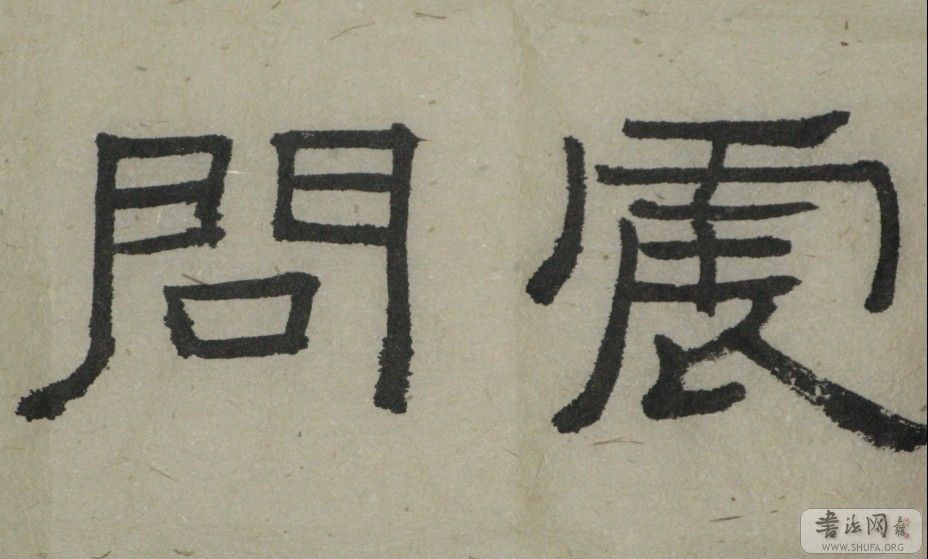 震問
書法网
WWW.SHUFA.ORG